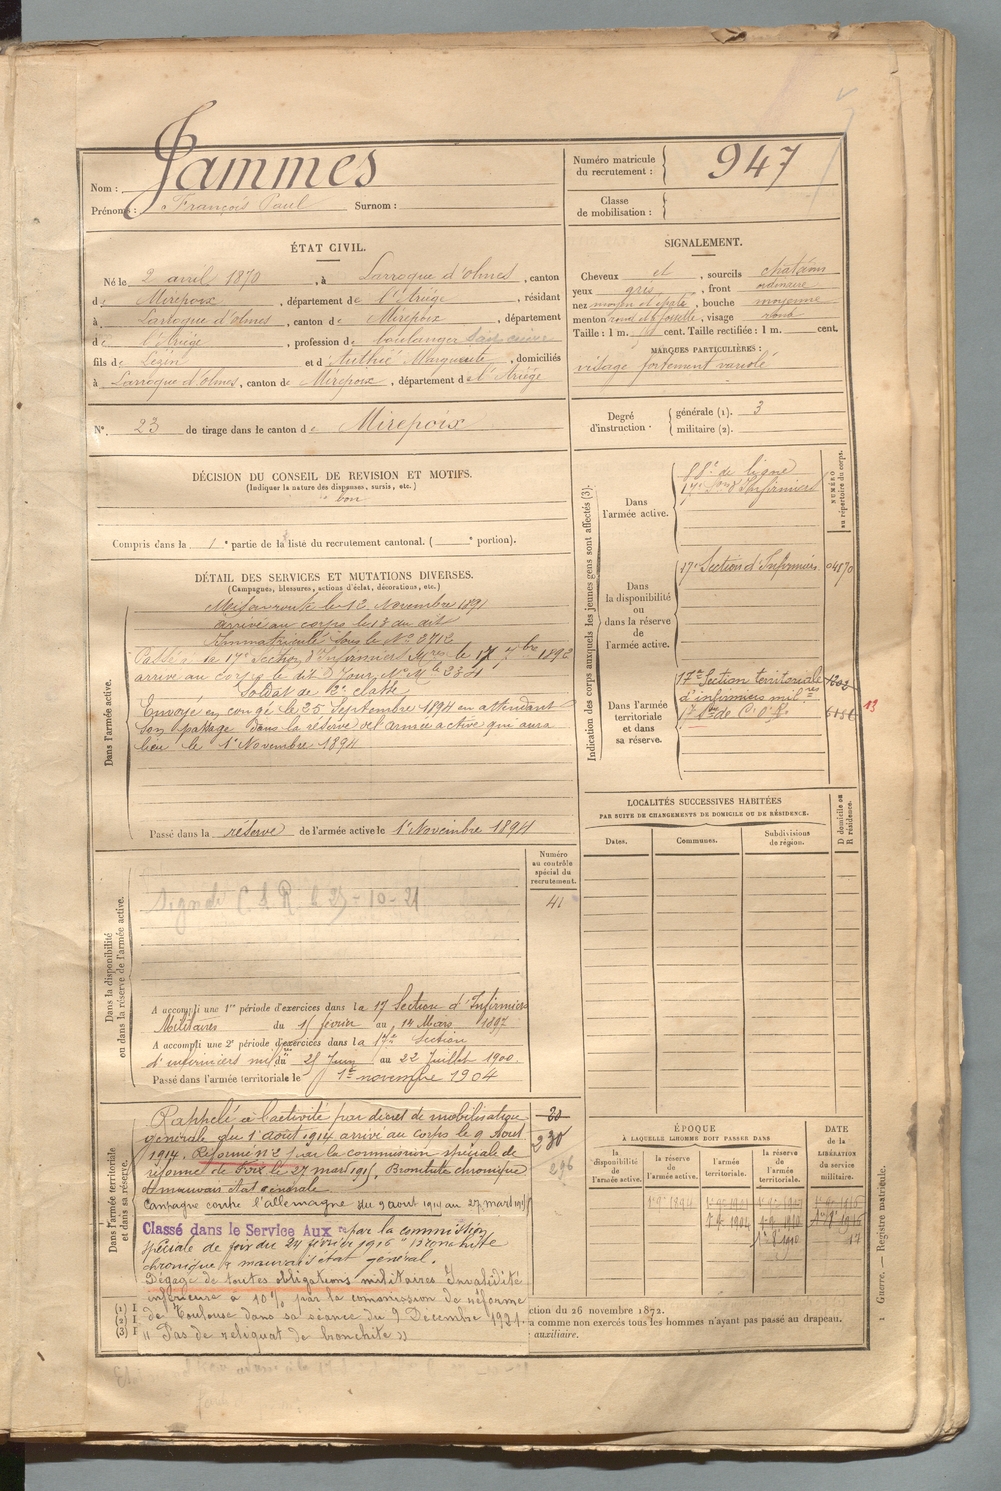 Nom : Jammes
Prénoms : François Paul Surnom :
Numéro matricule du recrutement : 947
Classe de mobilisation :
ÉTAT CIVIL.
Né le 2 avril 1870, à Larroque d'olmes, canton
de Mirepoix, département de l'Ariège, résidant
à Larroque d'olmes, canton de Mirepoix, département
de l'Ariège, profession de boulanger
fils de Lézin et d'Authié Marguerite, domiciliés
à Larroque d'olmes, canton de Mirepoix, département de l'Ariège
N°. 23 de tirage dans le canton de Mirepoix
SIGNALEMENT.
Cheveux et, sourcils chatains
yeux gris, front ordinaire
nez moyen et épaté, bouche moyenne
menton rond et à fossette, visage rond
Taille : 1 m. cent. Taille rectifiée : 1 m. cent.
MARQUES PARTICULIÈRES :
visage fortement variolé
Degré d'instruction. générale (1). 3
militaire (2).
DÉCISION DU CONSEIL DE REVISION ET MOTIFS.
(Indiquer la nature des dispenses, sursis, etc.)
bon
Compris dans la 1e partie de la liste du recrutement cantonal. ( e portion).
DÉTAIL DES SERVICES ET MUTATIONS DIVERSES.
(Campagnes, blessures, actions d'éclat, décorations, etc.)
Dans l'armée active.
Mis en route le 12 Novembre 1891
arrivé au corps le 13 du dit
Immatriculé sous le N° 2712
Passé à la 17e Section d'Infirmiers Mres le 17 7bre 1892
arrivé au corps le dit jour, N° Mle 2324
Soldat de 2e classe
Envoyé en congé le 25 Septembre 1894 en attendant
son passage dans la réserve de l'armée active qui aura
lieu le 1er Novembre 1894
Passé dans la réserve de l'armée active le 1er Novembre 1894
Indication des corps auxquels les jeunes gens sont affectés (3).
NUMÉRO au répertoire du corps.
Dans l'armée active.
88e de ligne
17e Son d'Infirmiers
Dans la disponibilité ou dans la réserve de l'armée active.
17e Section d'Infirmiers 04170
Dans l'armée territoriale et dans sa réserve.
17e Section territoriale 1202
d'infirmiers milres
17e Son de C.O.A.
13
LOCALITÉS SUCCESSIVES HABITÉES
PAR SUITE DE CHANGEMENTS DE DOMICILE OU DE RÉSIDENCE.
Dates. Communes. Subdivisions de région. D domicile ou R résidence.
Dans la disponibilité ou dans la réserve de l'armée active.
Numéro au contrôle spécial du recrutement.
41
Signalé C.S.R. le 27-10-21
A accompli une 1re période d'exercices dans la 17 Section d'Infirmiers
Militaires du 15 février au 14 Mars 1897
A accompli une 2e période d'exercices dans la 17e Section
d'infirmiers milres du 25 Juin au 22 Juillet 1900.
Passé dans l'armée territoriale le 1er novembre 1904
Dans l'armée territoriale et dans sa réserve.
Rappelé à l'activité par décret de mobilisation 20
générale du 1er août 1914 arrivé au corps le 9 Août 230
1914. Réformé n° 2 par la commission spéciale de 236
réforme de Foix le 27 mars 1915. Bronchite chronique
et mauvais état général
Campagne contre l'allemagne du 9 août 1914 au 27 mars 1915
Classé dans le Service Auxre par la commission
spéciale de foix du 24 février 1916 "Bronchite
chronique & mauvais état général.
Dégagé de toutes obligations militaires Invalidité
inférieure à 10% par la commission de réforme
de Toulouse dans sa séance du 9 Décembre 1921.
"Pas de reliquat de bronchite"
ÉPOQUE
À LAQUELLE L'HOMME DOIT PASSER DANS
la disponibilité de l'armée active. la réserve de l'armée active. l'armée territoriale. la réserve de l'armée territoriale. DATE de la LIBÉRATION du service militaire.
(1) I
(2) I
(3) I
ction du 26 novembre 1872.
a comme non exercés tous les hommes n'ayant pas passé au drapeau.
auxiliaire.
Guerre. — Registre matricule.